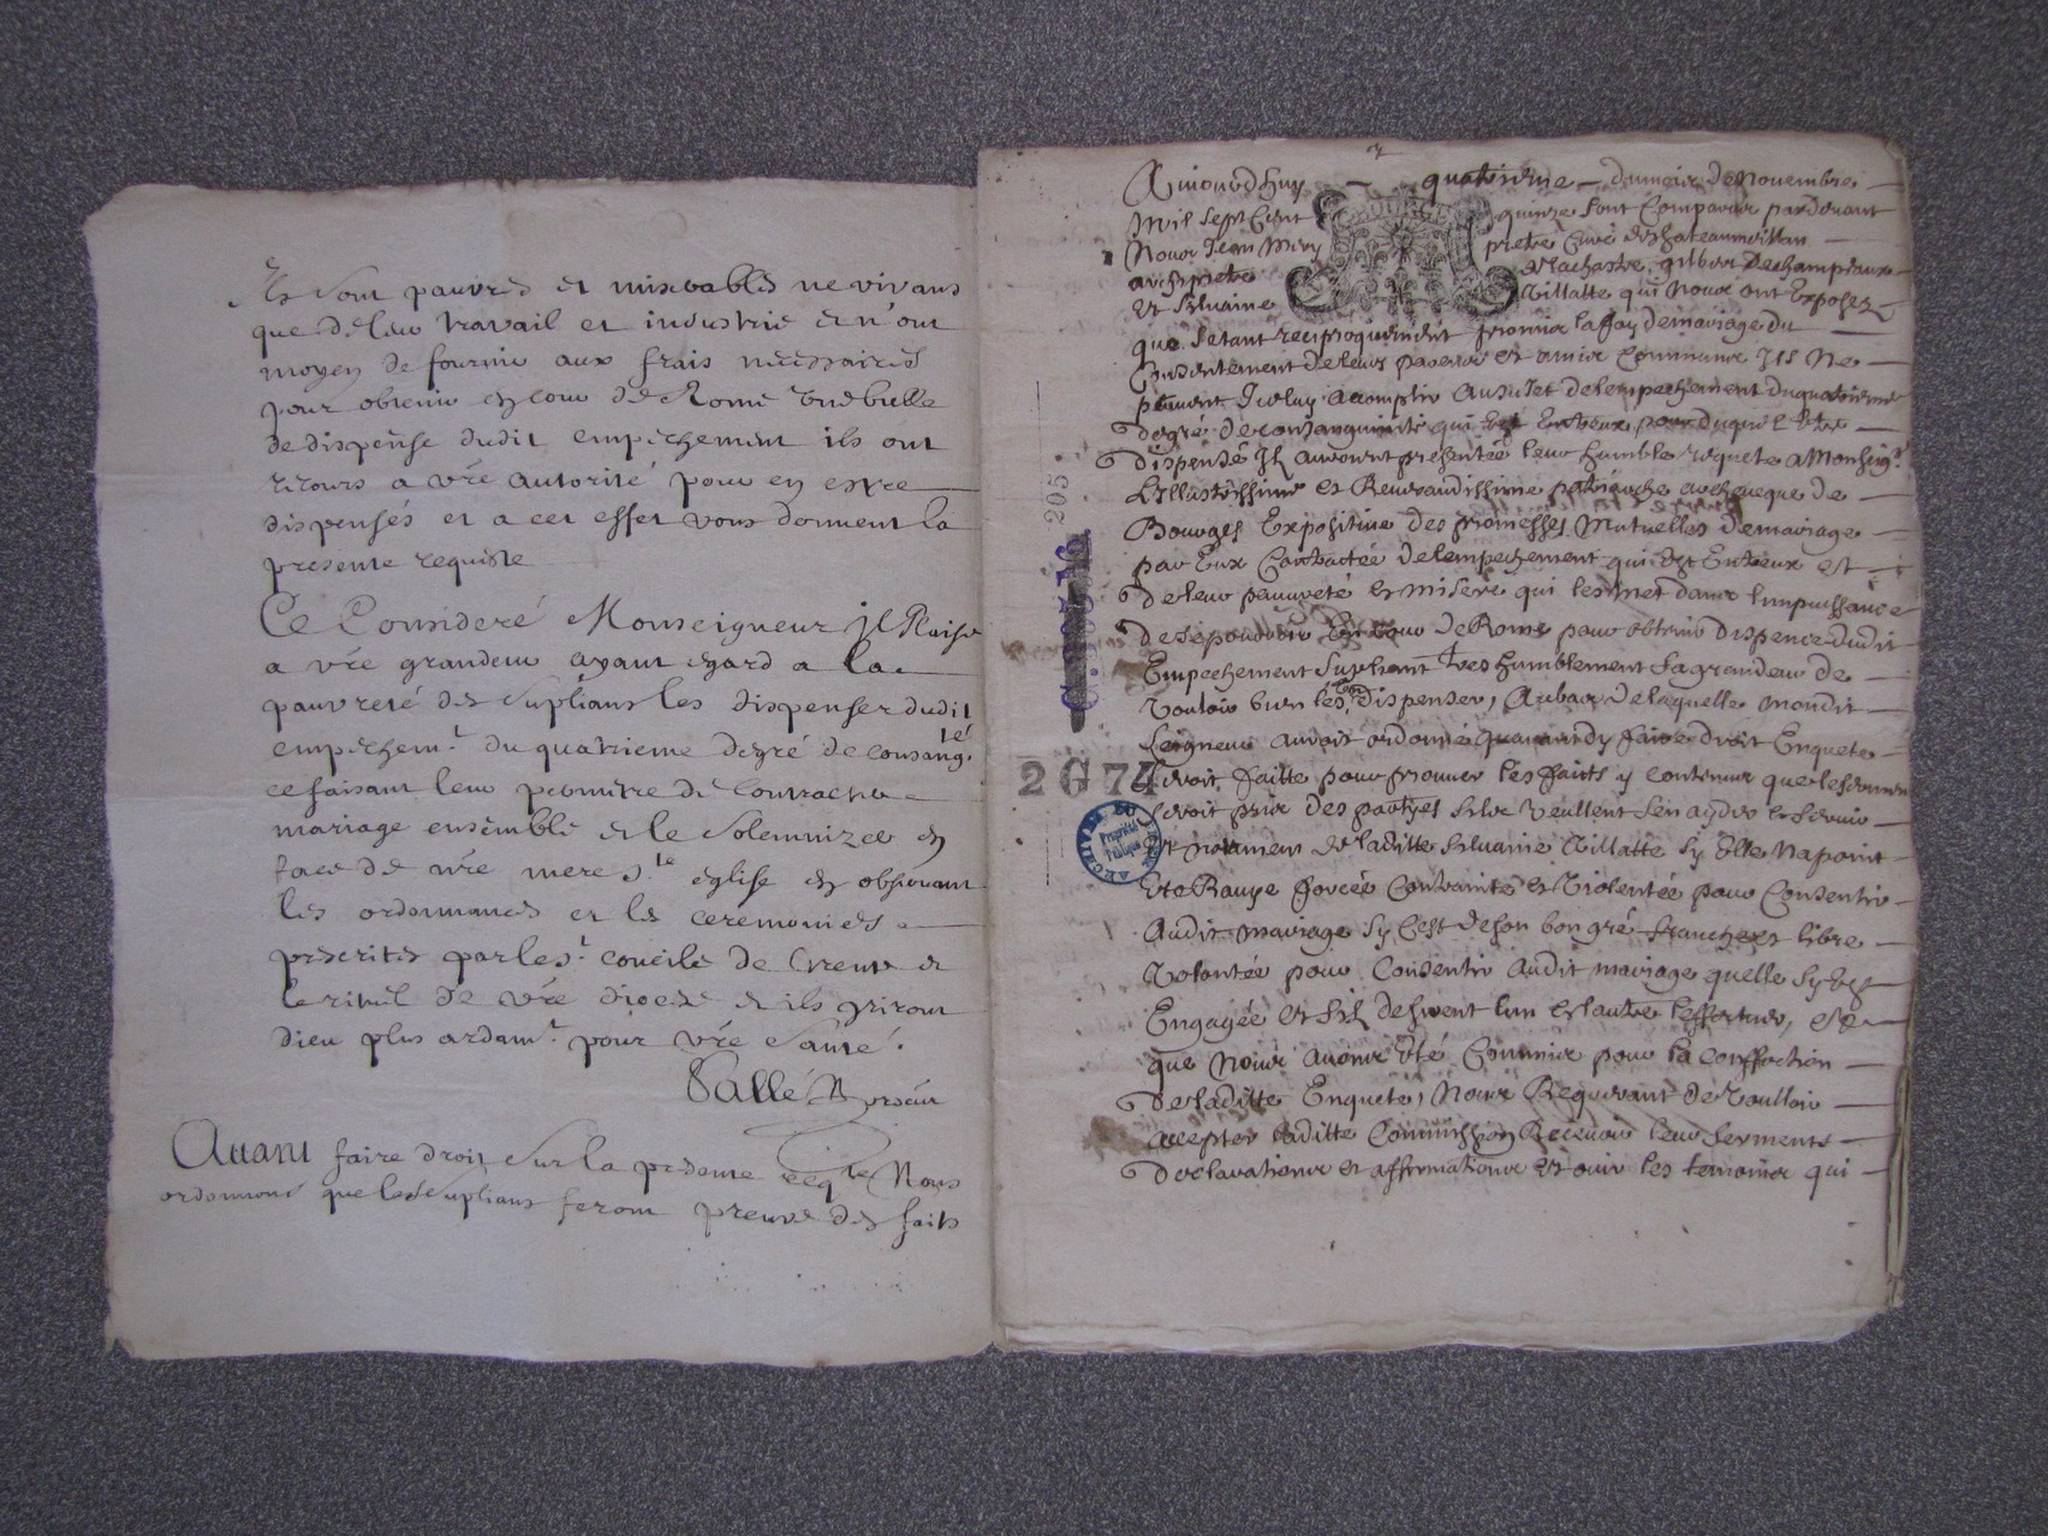 Ils sont pauvres et miserables ne vivans
que de leur travail et industrie et n'ont
moyen de fournir aux frais necessaires
pour obtenir en cour de Rome une bulle
de dispense dudit empechement ils ont
recours a vre autorité pour en estre
dispensés et a cet effet vous donnent la
presente requeste
Ce Consideré Monseigneur il Plaise
a vre grandeur ayant egard a la
pauvreté des suplians les dispenser dudit
empechemt. du quatrieme degré de consangté.
ce faisant leur permettre de contracter
mariage ensemble et le solemnizer en
face de nre mere ste église en observant
les ordonnances et les ceremonies
prescrites par le st. concile de trente et
le rituel de vre diocese et ils priront
dieu plus ardamt. pour vre santé.
Vallé
Avant faire droit sur la presente reqte Nous
ordonnons que les suplians feront preuve des faits
Aujourdhuy quatrieme du mois de Novembre
Mil sept Cent quinze sont Comparus pardevant
Nous Jean prêtre Curé de Chateaumeillan
archiprêtre de la chastre gilber Dechampeaux
et silvaine Villatte qui Nous ont Exposez
que s'etant reciproquement promis la foy de mariage du
Consentement de leurs parens et amis communs Ils Ne
peuvent Iceluy accomplir au sujet de l'empechement du quatrieme
degré de consanguinité qui est Entreux pour duquel Etre
dispensé Ils auroient presentée leur humble requete a Monseigr.
L'Illustrissime et Reverandissime patriarche archeveque de
Bourges Expositive des promesses Mutuelles de mariage
par Eux Contractée de lempechement qui est Entreux et
de leur pauvreté et misere qui les met dans limpuissance
de se pouvoir En Cour de Rome pour obtenir dispence dudit
Empechement supliant tres humblement sa grandeur de
Vouloir bien les en dispenser, Aubas de laquelle mondit
Seigneur auroit ordonné quavant dy faire droit Enquete
seroit faitte pour prouver les faits y contenus que le serment
seroit pris des partyes silz veullent sen ayder et servir
Et notament de laditte silvaine Villatte sy Elle Na point
Ete Ravye forcée Contrainte et Violentée pour Consentir
Audit mariage sy Cest de son bon gré franche et libre
Volontée pour Consentir Audit mariage quelle sy est
Engagée et sils desirent lun et lautre leffectuer, et
que Nous avons Eté Commis pour la Conffection
de laditte Enquete, Nous Requerant de Voulloir
accepter laditte Commission Recevoir leur serments
declarations et affirmations et ouir les temoins qui
205
2 G 74
ARCHIVES DU
Propriété
Publique